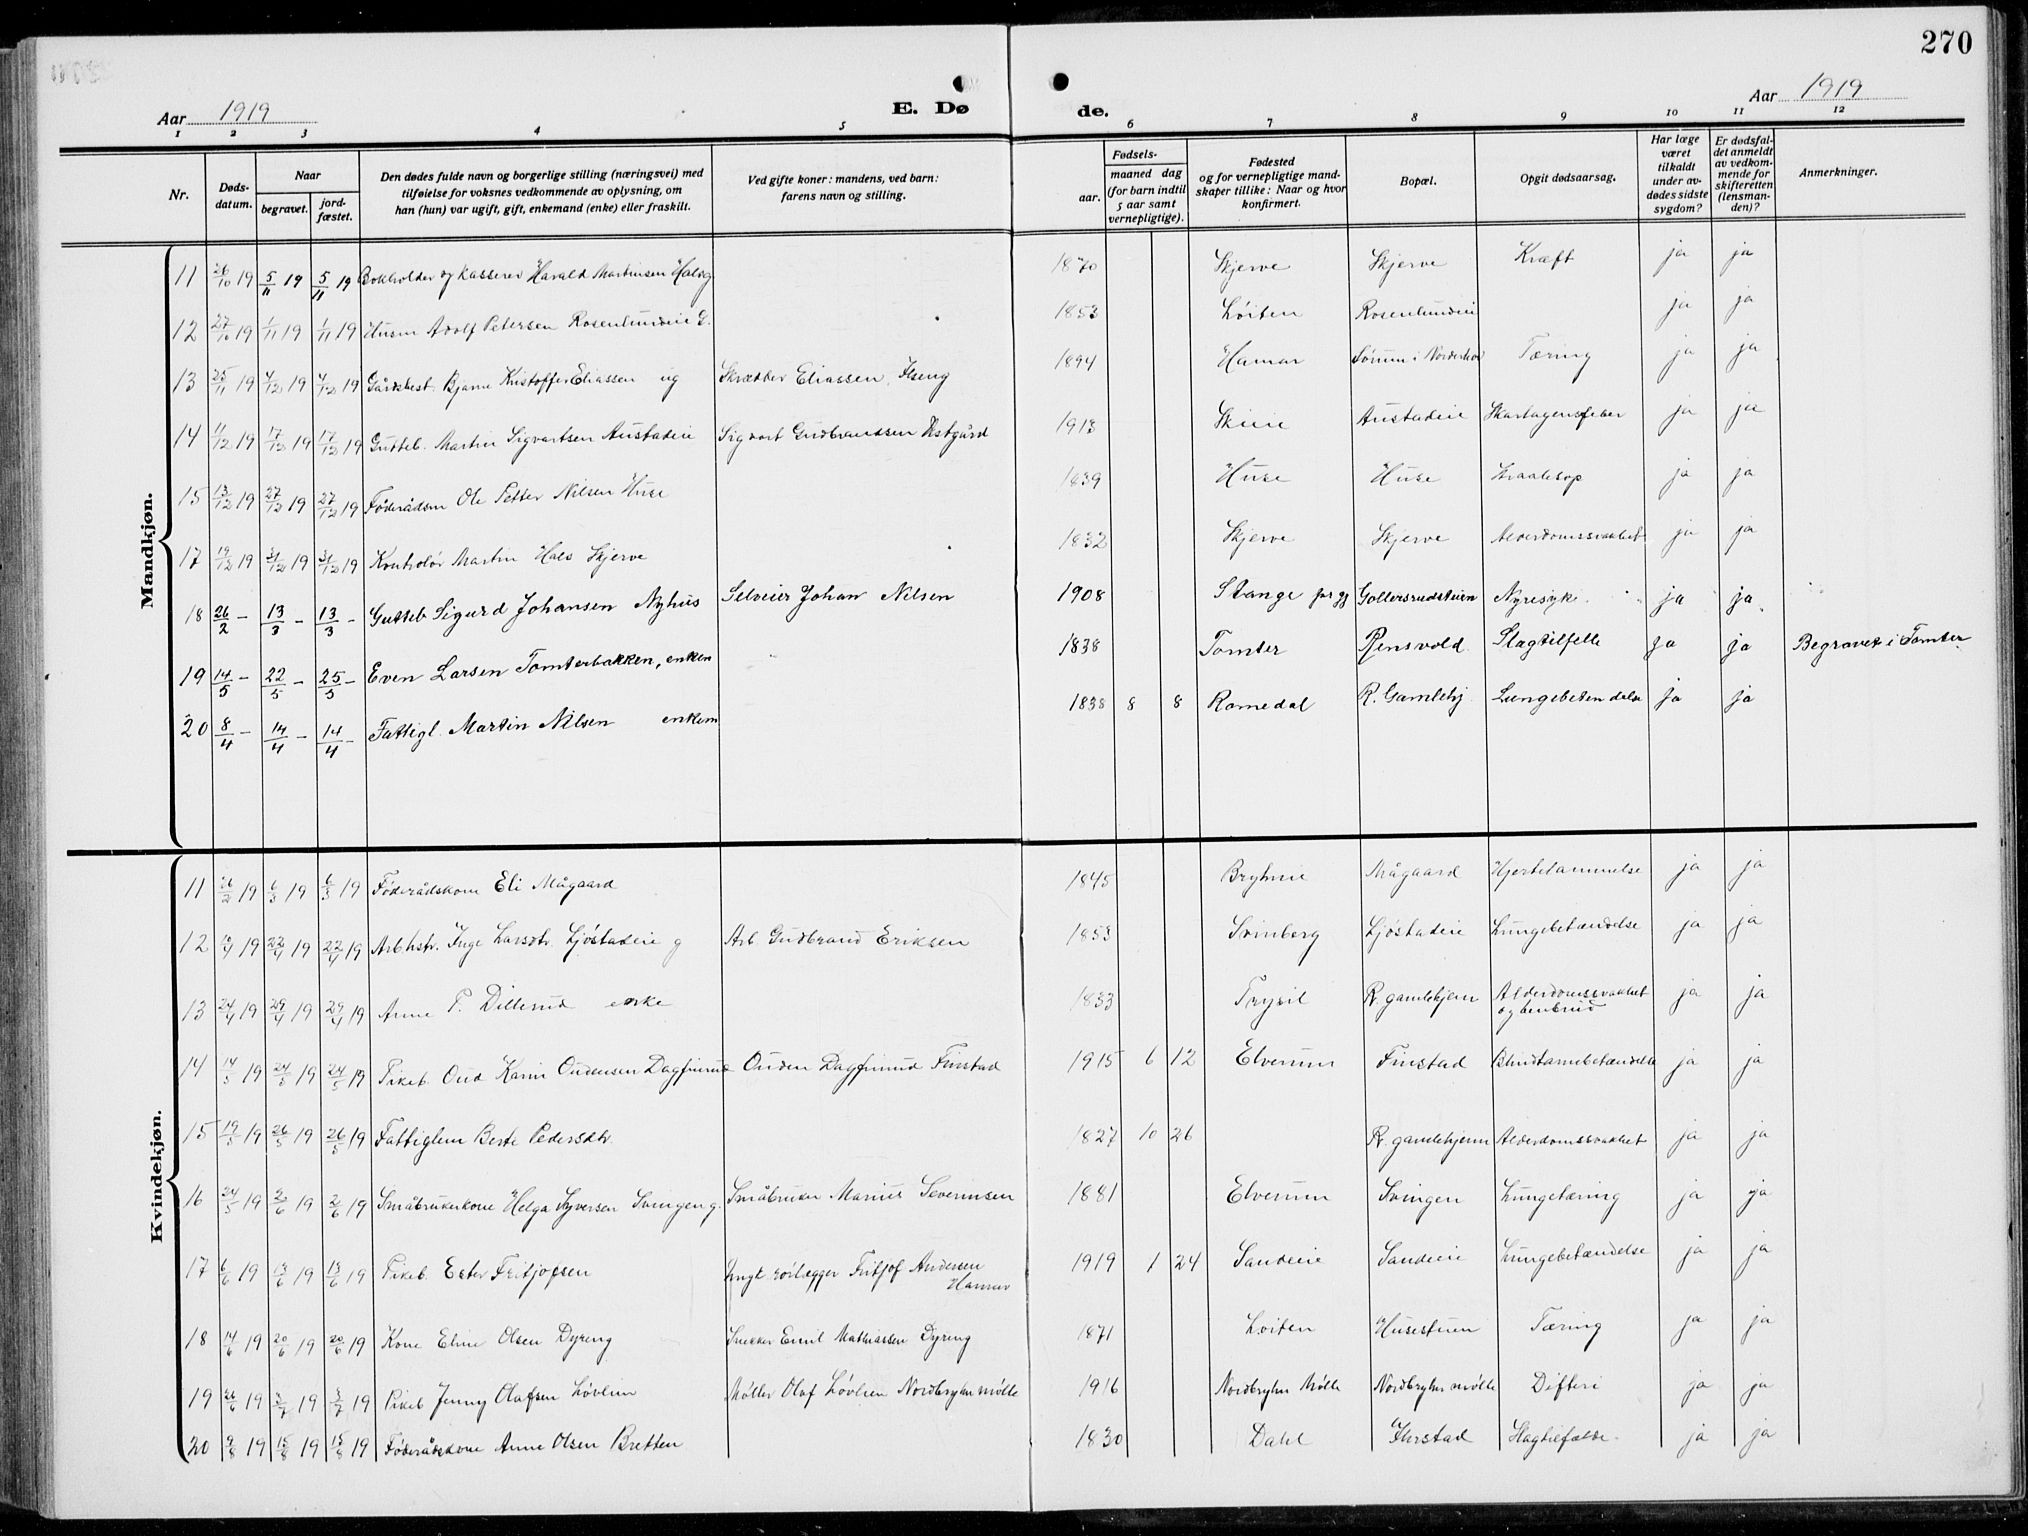 270
Aar 1919
E. Dø
de.
Aar 1919
1 2 3 4 5 6 7 8 9 10 11 12
Nr.
Døds-
datum.
Naar
begravet.
jord-
fæstet.
Den dødes fulde navn og borgerlige stilling (næringsvei) med
tilføielse for voksnes vedkommende av oplysning, om
han (hun) var ugift, gift, enkemand (enke) eller fraskilt.
Ved gifte koner: mandens, ved barn:
farens navn og stilling.
Fødsels-
aar.
maaned dag
(for barn indtil
5 aar samt
vernepligtige).
Fødested
og for vernepligtige mand-
skaper tillike: Naar og hvor
konfirmert.
Bopæl.
Opgit dødsaarsag.
Har læge
været
tilkaldt
under av-
dødes sidste
sygdom?
Er dødsfal-
det anmeldt
av vedkom-
mende for
skifteretten
(lensman-
den)?
Anmerkninger.
Mandkjøn.
11 26/10 19 5/11 19 5/11 19 Bokholder og kasserer Harald Martinsen 1870 Skjerve Skjerve Kræft ja ja
12 27/10 19 1/11 19 1/11 19 Husm Adolf Petersen Rosenlundeie G. 1853 Løiten Rosenlundeie ja ja
13 25/11 19 4/12 19 4/12 19 Gårdbest. Bjarne Kristoffer Eliassen ug Skrædder Eliassen, Ilseng 1894 Hamar Sørum i Nordenhov Tæring ja ja
14 11/12 19 17/12 19 17/12 19 Gutteb. Martin Sigvartsen Austadeie Sigvart Gudbrandsen 1913 Skieie Austadeie Skarlagensfeber ja ja
15 13/12 19 27/12 19 27/12 19 Føderådsm Ole Petter Nilsen Huse 1839 Huse Huse ja ja
17 19/12 19 31/12 19 31/12 19 Kontrolør Martin Hals Skjerve 1832 Skjerve Skjerve Alderdomssvakhet ja ja
18 26/2 - 13/3 - 13/3 - Gutteb Sigurd Johansen Nyhus Selveier Johan Nilsen 1908 Stange prgj Gollersrudsteien Nyresyke ja ja
19 14/5 - 22/5 - 25/5 - Even Larsen Tomterbakken, enkem 1838 Tomter Rensvold Slagtilfelle ja ja Begravet i Tomter
20 8/4 - 14/4 - 14/4 - Fattigl. Martin Nilsen enkem 1838 8 8 Romedal R. Gamlehj. Lungebetendelse ja ja
Kvindekjøn.
11 26/2 19 6/3 19 6/3 19 Føderådskone Eli Mågaard 1845 Bryhnie Mågaard Hjertelammelse ja ja
12 19 22/4 19 22/4 19 Arbhstr. Inge Larsdtr. Ljøstadeie g Arb. Gudbrand Eriksen 1853 Svinberg Ljøstadeie Lungebetændelse ja ja
13 24/4 19 29/4 19 29/4 19 Anne P. Dillerud enke 1833 Trysil R. gamlehjem Alderdomssvakhet
og benbrud ja ja
14 14/5 19 24/5 19 24/5 19 Pikeb. Oud Karin Oudensen Dagfinrud Ouden Dagfinrud Finstad 1915 6 12 Elverum Finstad Blindtarmbetændelse ja ja
15 19/5 19 26/5 19 26/5 19 Fattiglem Berte Pedersdtr. 1827 10 26 R. gamlehjem Alderdomssvakhet ja ja
16 24/5 19 2/6 19 2/6 19 Småbrukerkone Helga Syversen Svingen g. Småbruker Marius Severinsen 1881 Elverum Svingen Lungetæring ja ja
17 6/6 19 13/6 19 13/6 19 Pikeb. Ester Fritjofsen Ungk rørlægger Fritjof Andersen
Hamar 1919 1 24 Sandeie Sandeie Lungebetændelse ja ja
18 14/6 19 20/6 19 20/6 19 Kone Eline Olsen Dyreng Snekker Emil Mathiassen Dyreng 1871 Løiten Husestuen Tæring ja ja
19 26/6 19 3/7 19 3/7 19 Pikeb Jenny Olafsen Løvlien Møller Olaf Løvlien Nordbryhn mølle 1916 Nordbryhn Mølle Nordbryhn mølle Difteri ja ja
20 9/8 19 15/8 19 15/8 19 Føderådskone Anne Olsen Bretten 1830 Dahl Slagtilfælde. ja ja